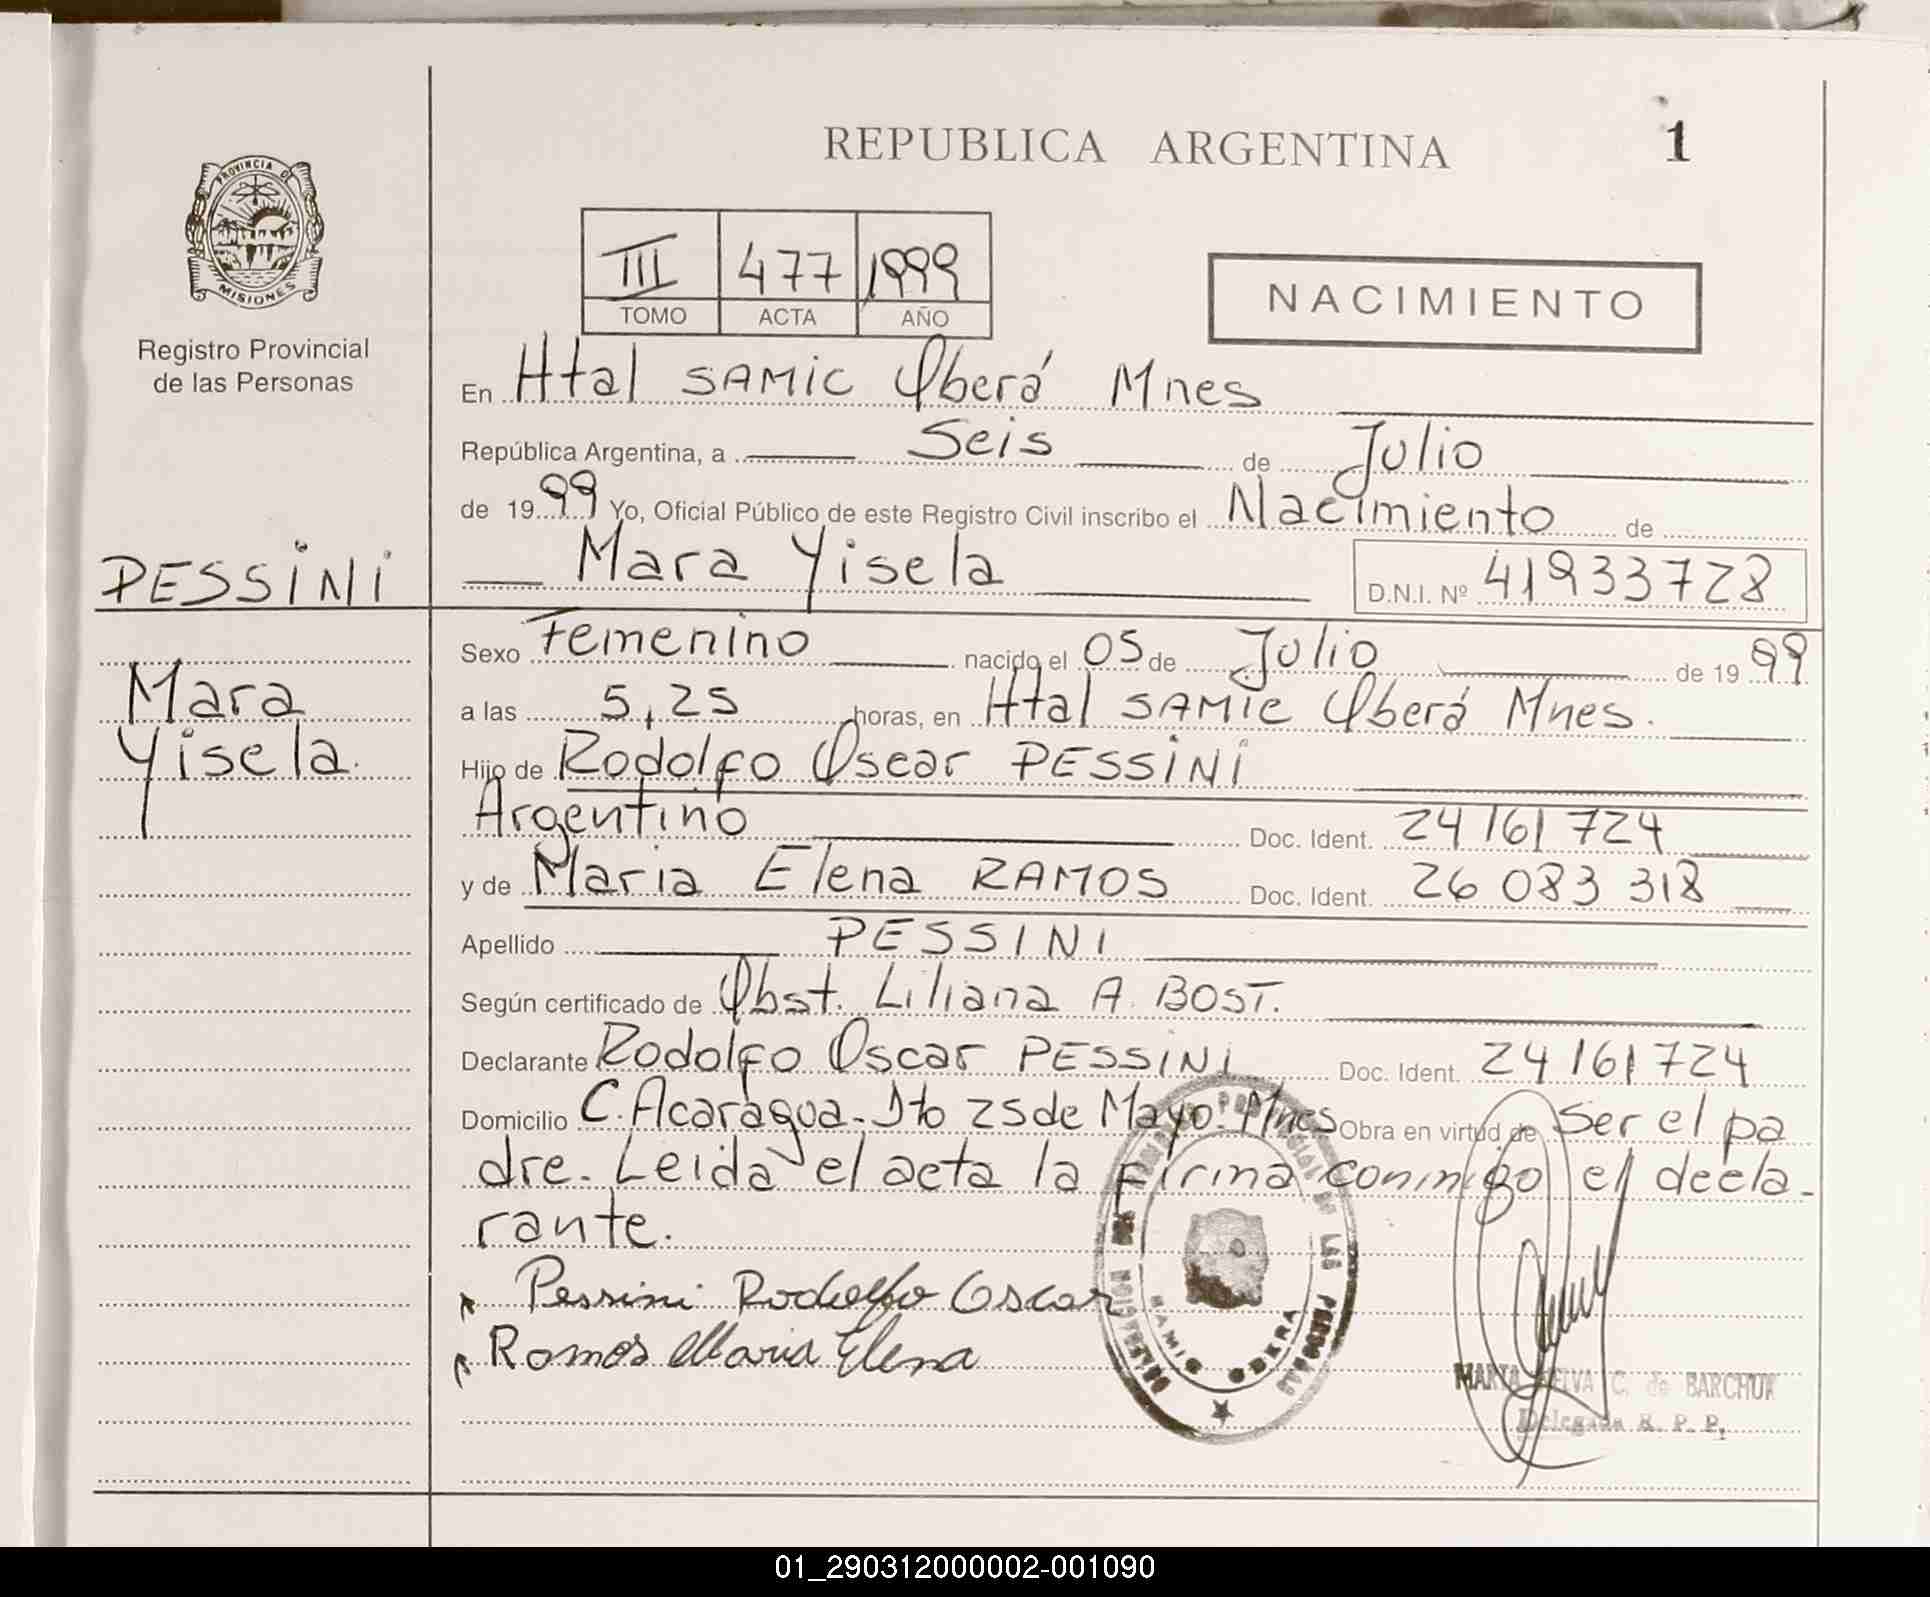 REPUBLICA ARGENTINA
1
PROVINCIA DE
MISIONES
Registro Provincial
de las Personas
III 477 1999
TOMO ACTA AÑO
NACIMIENTO
En Htal SAMIC Oberá Mnes
República Argentina, a Seis de Julio
de 1999 Yo, Oficial Público de este Registro Civil inscribo el Nacimiento de
Mara Yisela D.N.I. Nº 41933728
PESSINI
Mara
Yisela.
Sexo Femenino nacido el 05 de Julio de 1999
a las 5,25 horas, en Htal SAMIC Oberá Mnes.
Hijo de Rodolfo Oscar PESSINI
Argentino Doc. Ident. 24 161 724
y de Maria Elena RAMOS Doc. Ident. 26 083 318
Apellido PESSINI
Según certificado de Obst. Liliana A. BOST.
Declarante Rodolfo Oscar PESSINI Doc. Ident. 24 161 724
Domicilio C. Acaragua - Dto 25 de Mayo. Mnes Obra en virtud de Ser el pa
dre. Leida el acta la firma conmigo el decla-
rante.
Pessini Rodolfo Oscar
Ramos Maria Elena
PROVINCIAL DE LAS PERSONAS
SAMIC OBERA
MARTA SELVA C. de BARCHUK
Delegada R. P. P.
01_290312000002-001090